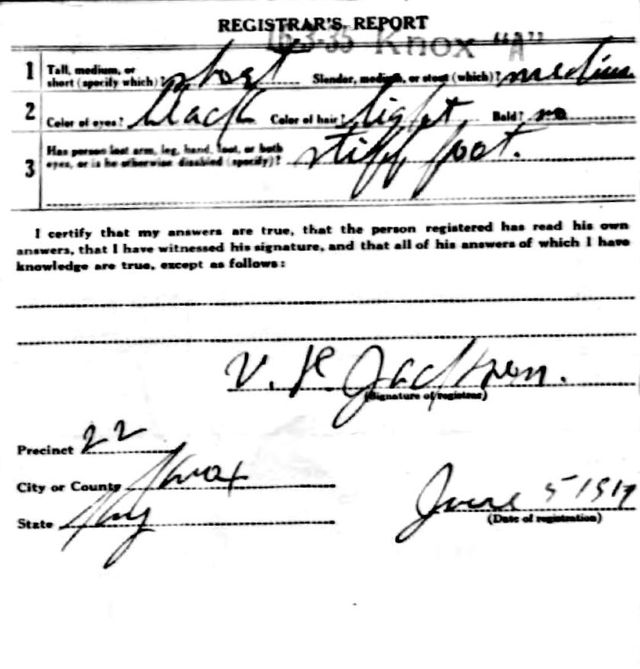 REGISTRAR'S REPORT
16-3-35 Knox "A"
1 Tall, medium, or short (specify which)? short Slender, medium, or stout (which)? medium
2 Color of eyes? black Color of hair? light Bald? no
3 Has person lost arm, leg, hand, foot, or both
eyes, or is he otherwise disabled (specify)? stiff foot.
I certify that my answers are true, that the person registered has read his own
answers, that I have witnessed his signature, and that all of his answers of which I have
knowledge are true, except as follows:
V. H Jackson.
(Signature of registrar)
Precinct 22
City or County Knox
State Ky
June 5 1917
(Date of registration)